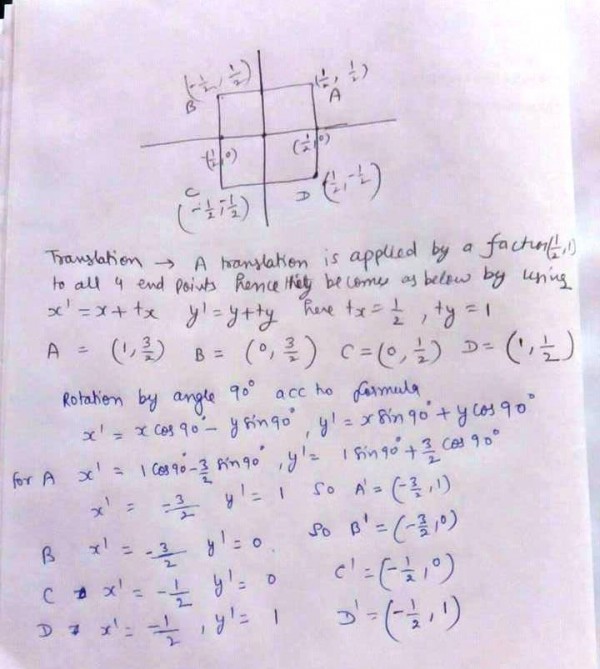 (-1/2, 1/2)
(1/2, 1/2)
B
A
(-1/2, 0)
(1/2, 0)
C
D
(-1/2, -1/2)
(1/2, -1/2)
Translation → A translation is applied by a factor (1/2, 1)
to all 4 end points hence they becomes as below by using
x' = x + tx y' = y + ty here tx = 1/2 , ty = 1
A = (1, 3/2) B = (0, 3/2) C = (0, 1/2) D = (1, 1/2)
Rotation by angle 90° acc to formula
x' = x cos 90° - y sin 90° , y' = x sin 90° + y cos 90°
For A x' = 1 cos 90° - 3/2 sin 90° , y' = 1 sin 90° + 3/2 cos 90°
x' = -3/2 y' = 1 So A' = (-3/2, 1)
B x' = -3/2 y' = 0 So B' = (-3/2, 0)
C x' = -1/2 y' = 0 C' = (-1/2, 0)
D x' = -1/2 , y' = 1 D' = (-1/2, 1)